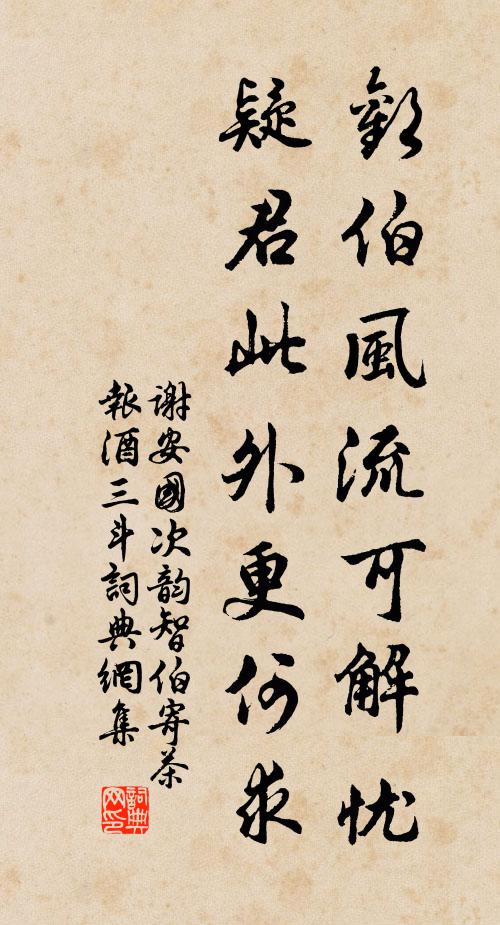 歡伯風流可解忧
疑君此外更何求
謝安國次韵智伯寄茶
報酒三斗詞典網集
詞典
网印